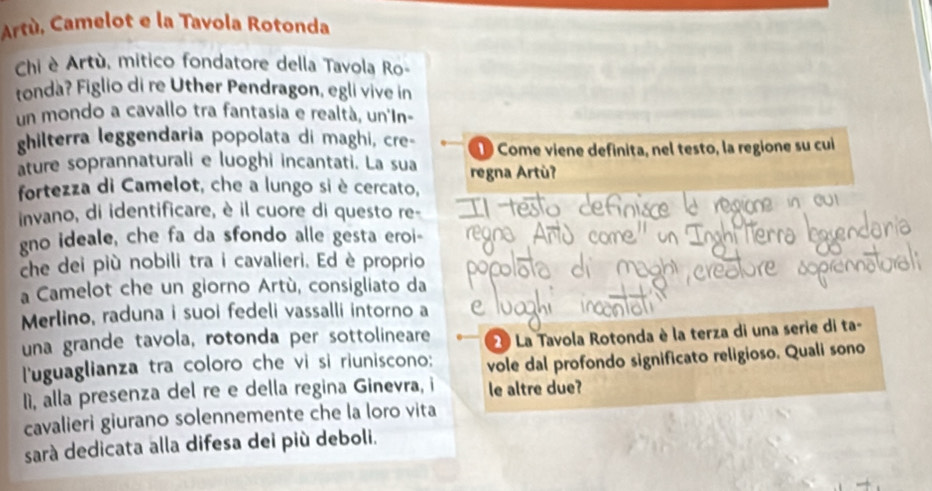 Artù, Camelot e la Tavola Rotonda
Chi è Artù, mitico fondatore della Tavola Ro-
tonda? Figlio di re Uther Pendragon, egli vive in
un mondo a cavallo tra fantasia e realtà, un'In-
ghilterra leggendaria popolata di maghi, cre-
ature soprannaturali e luoghi incantati. La sua
fortezza di Camelot, che a lungo si è cercato,
invano, di identificare, è il cuore di questo re-
gno ideale, che fa da sfondo alle gesta eroi-
che dei più nobili tra i cavalieri. Ed è proprio
a Camelot che un giorno Artù, consigliato da
Merlino, raduna i suoi fedeli vassalli intorno a
una grande tavola, rotonda per sottolineare
l'uguaglianza tra coloro che vi si riuniscono;
lì, alla presenza del re e della regina Ginevra, i
cavalieri giurano solennemente che la loro vita
sarà dedicata alla difesa dei più deboli.
1 Come viene definita, nel testo, la regione su cui
regna Artù?
Il testo definisce la regione in cui
regna Artù come "un Inghilterra leggendaria
popolata di maghi, creature soprannaturali
e luoghi incantati"
2 La Tavola Rotonda è la terza di una serie di ta-
vole dal profondo significato religioso. Quali sono
le altre due?